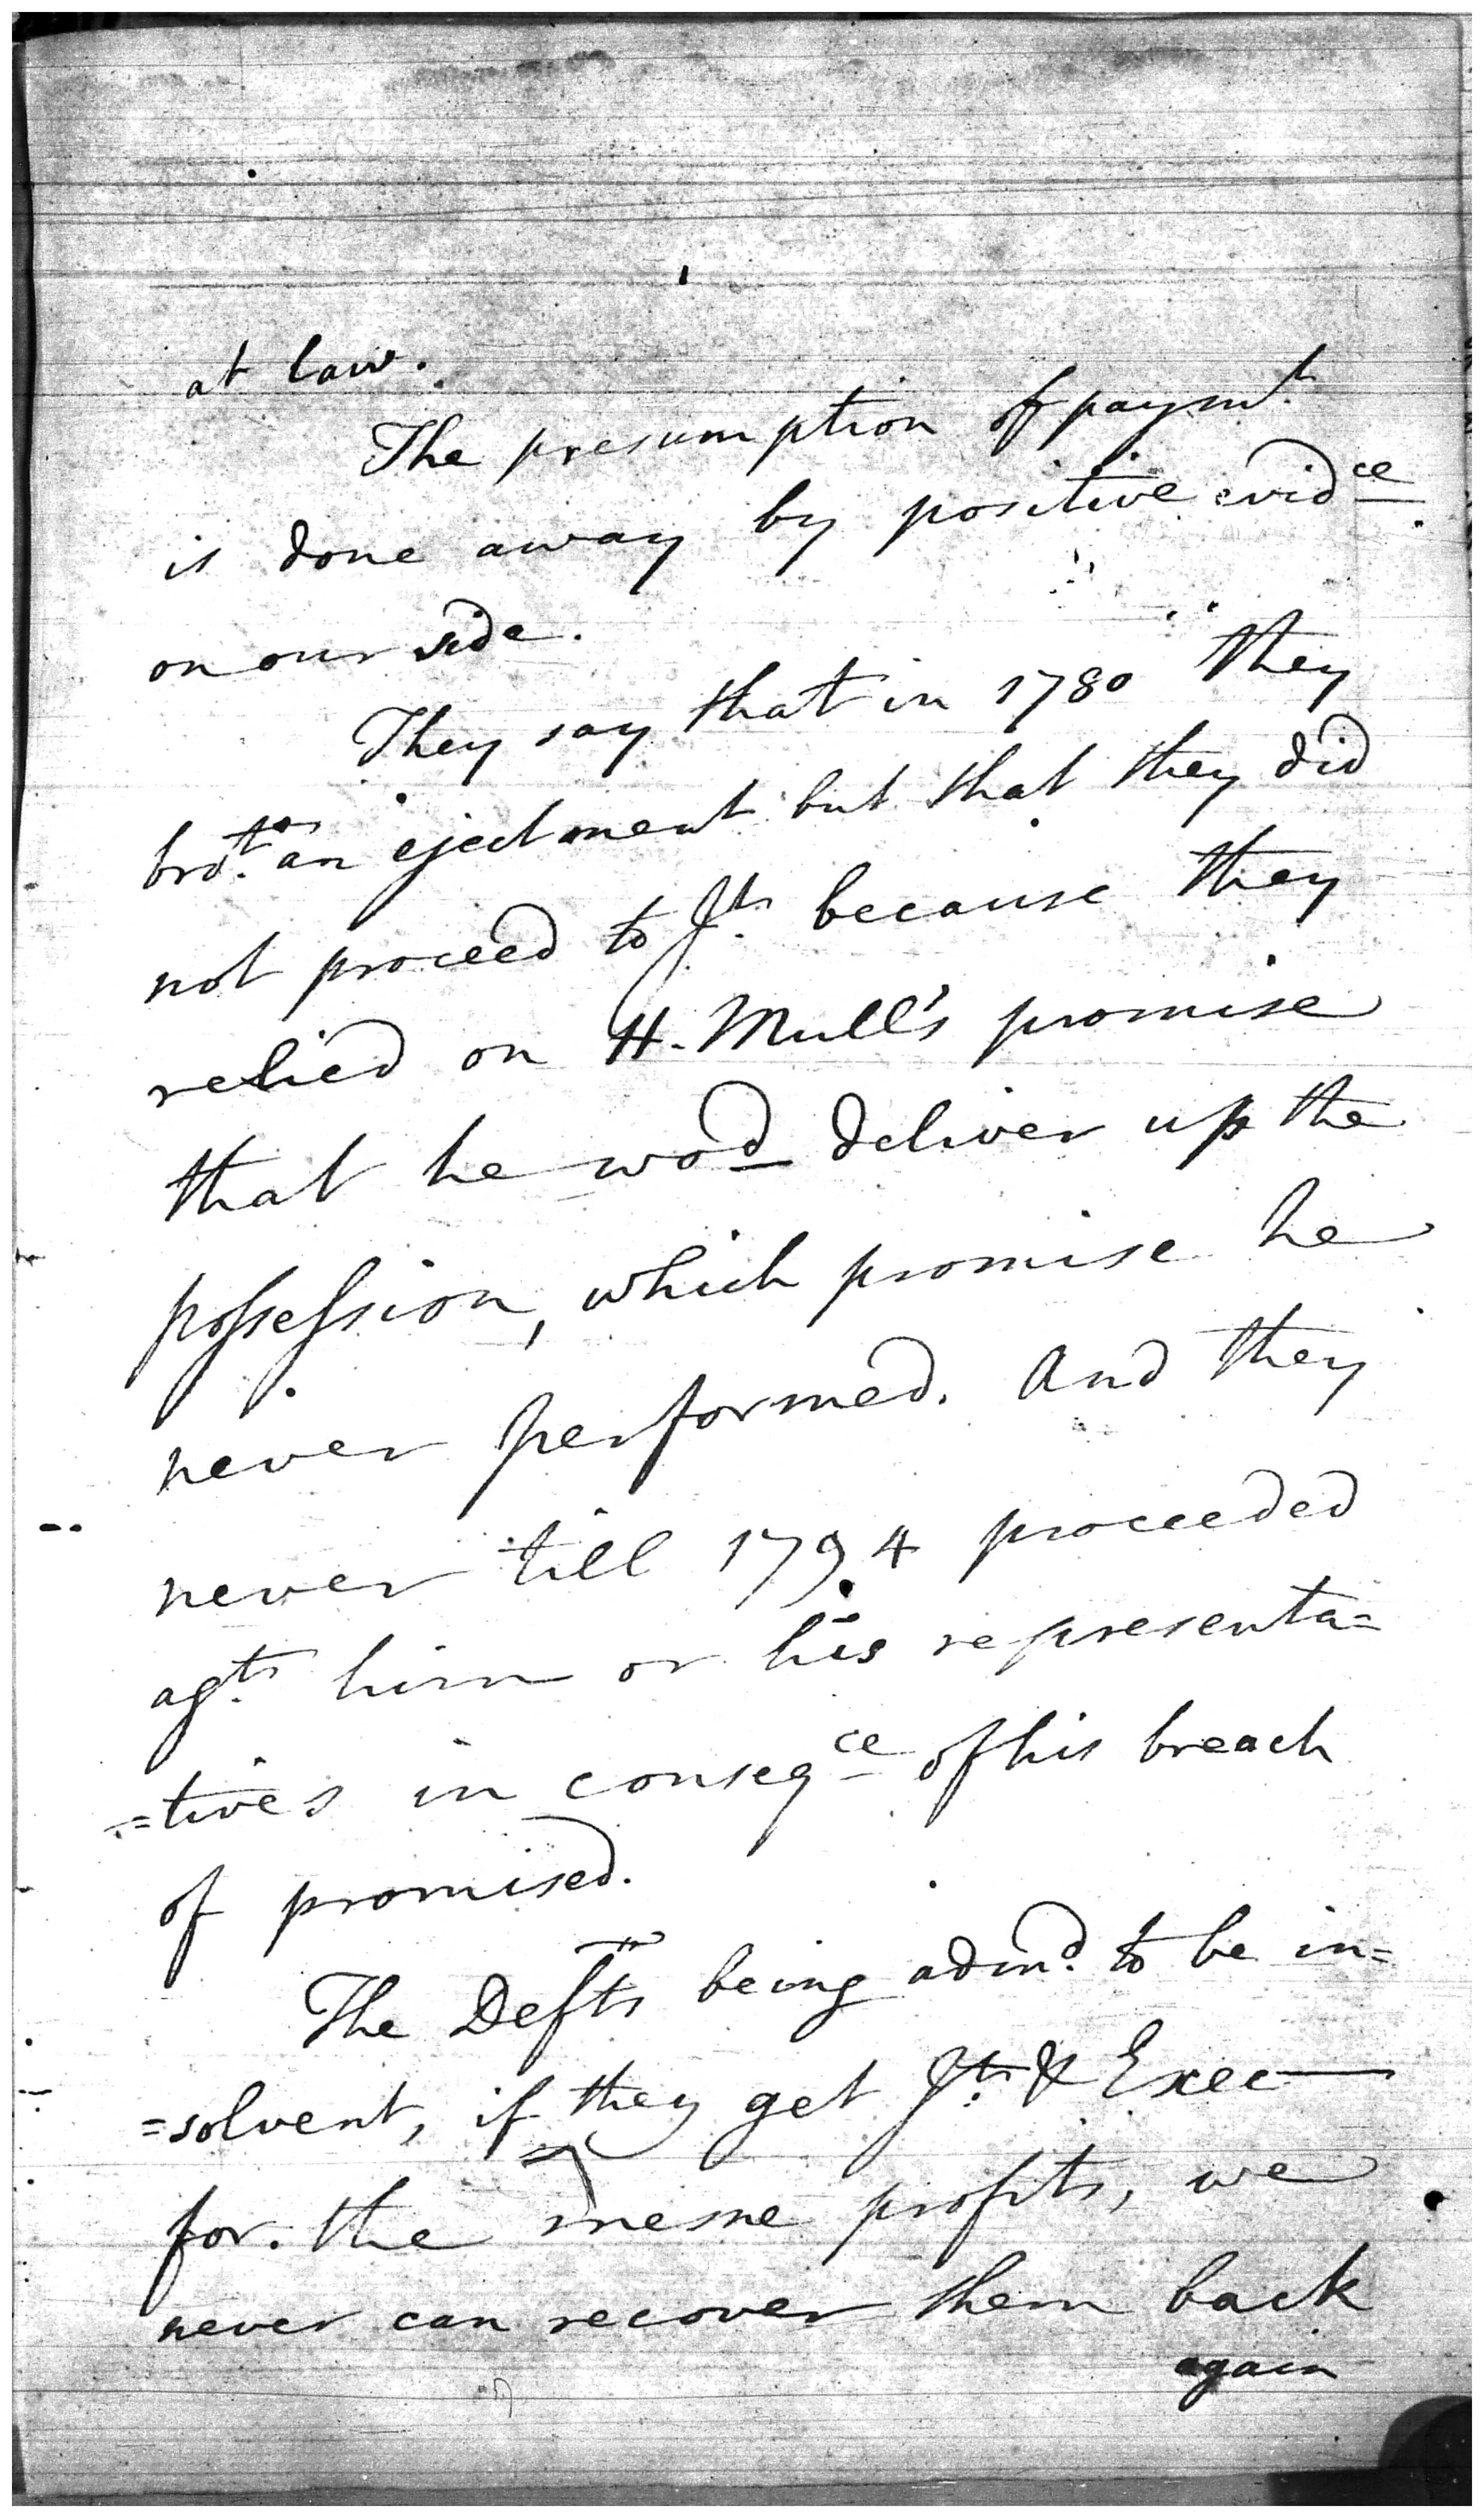 at law.
The presumption of paymt.
is done away by positive evidce.
on our side.
They say that in 1780 they
brot. an ejectment but that they did
not proceed to Jt. because they
relied on H. Mull's promise
that he wod deliver up the
possession, which promise he
never performed. And they
never till 1794 proceeded
agt. him or his representa=
=tives in conseqce of his breach
of promised.
The Defts being admd. to be in=
=solvent, if they get Jt. & Exec
for the mesne profits, we
never can recover them back
again